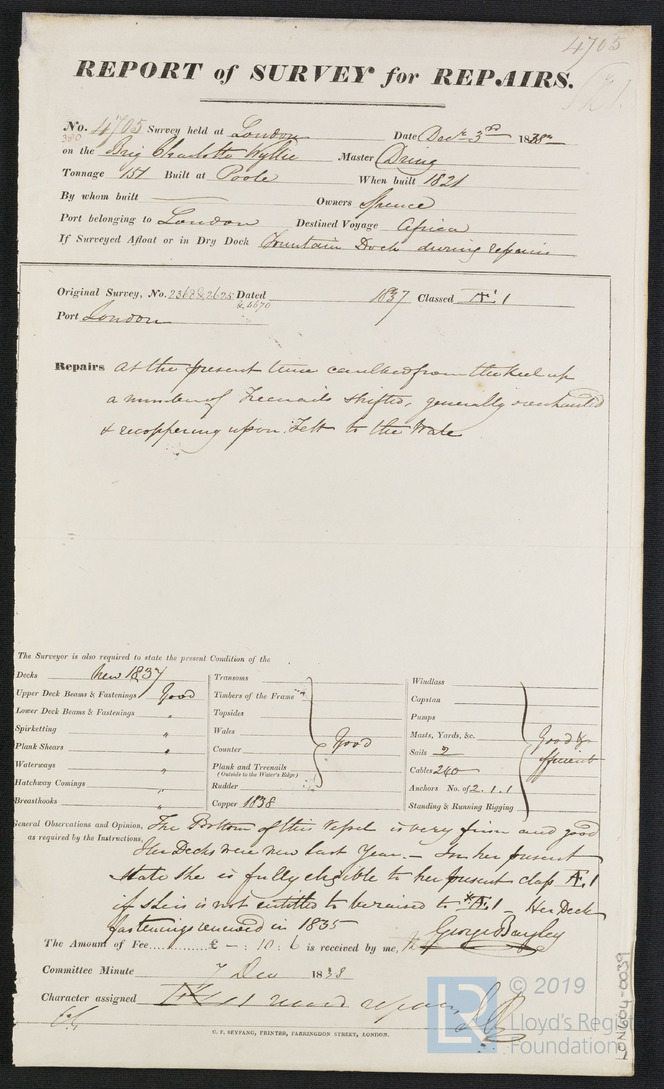 4705
REPORT of SURVEY for REPAIRS.
No. 4705 Survey held at London Date Decr 3rd 1838
380
on the Brig Charlotte Wyllie Master Dring
Tonnage 151 Built at Poole When built 1821
By whom built Owners Spence
Port belonging to London Destined Voyage Africa
If Surveyed Afloat or in Dry Dock Fountain Dock during repairs
Original Survey, No. 2368 & 2625 Dated 1837 Classed Æ 1
& 4670
Port London
Repairs At the present time caulked from the keel up
a number of Treenails shifted, generally overhauled
& recoppering upon Felt to the Wale
The Surveyor is also required to state the present Condition of the
Decks New 1837
Upper Deck Beams & Fastenings Good
Lower Deck Beams & Fastenings "
Spirketting "
Plank Shears "
Waterways "
Hatchway Comings "
Breasthooks "
Transoms
Timbers of the Frame
Topsides
Wales
Counter Good
Plank and Treenails
(Outside to the Water's Edge)
Rudder
Copper 1838
Windlass
Capstan
Pumps
Masts, Yards, &c. Good &
Sails 2 efficient
Cables 240
Anchors No. of 2.1.1
Standing & Running Rigging
General Observations and Opinion, The Bottom of this Vessel is very firm and good
as required by the Instructions, Her Decks were new last Year. — In her present
state she is fully eligible to her present class Æ 1
if she is not entitled to be raised to *Æ 1 — Her Deck
fastenings renewed in 1835
The Amount of Fee.... £ — : 10 : 6 is received by me, George Bayley
Committee Minute 7 Dec 1838
Character assigned record repairs
C. F. SEYFANG, PRINTER, FARRINGDON STREET, LONDON.
LR © 2019
Lloyd's Register
Foundation
LON604-0039